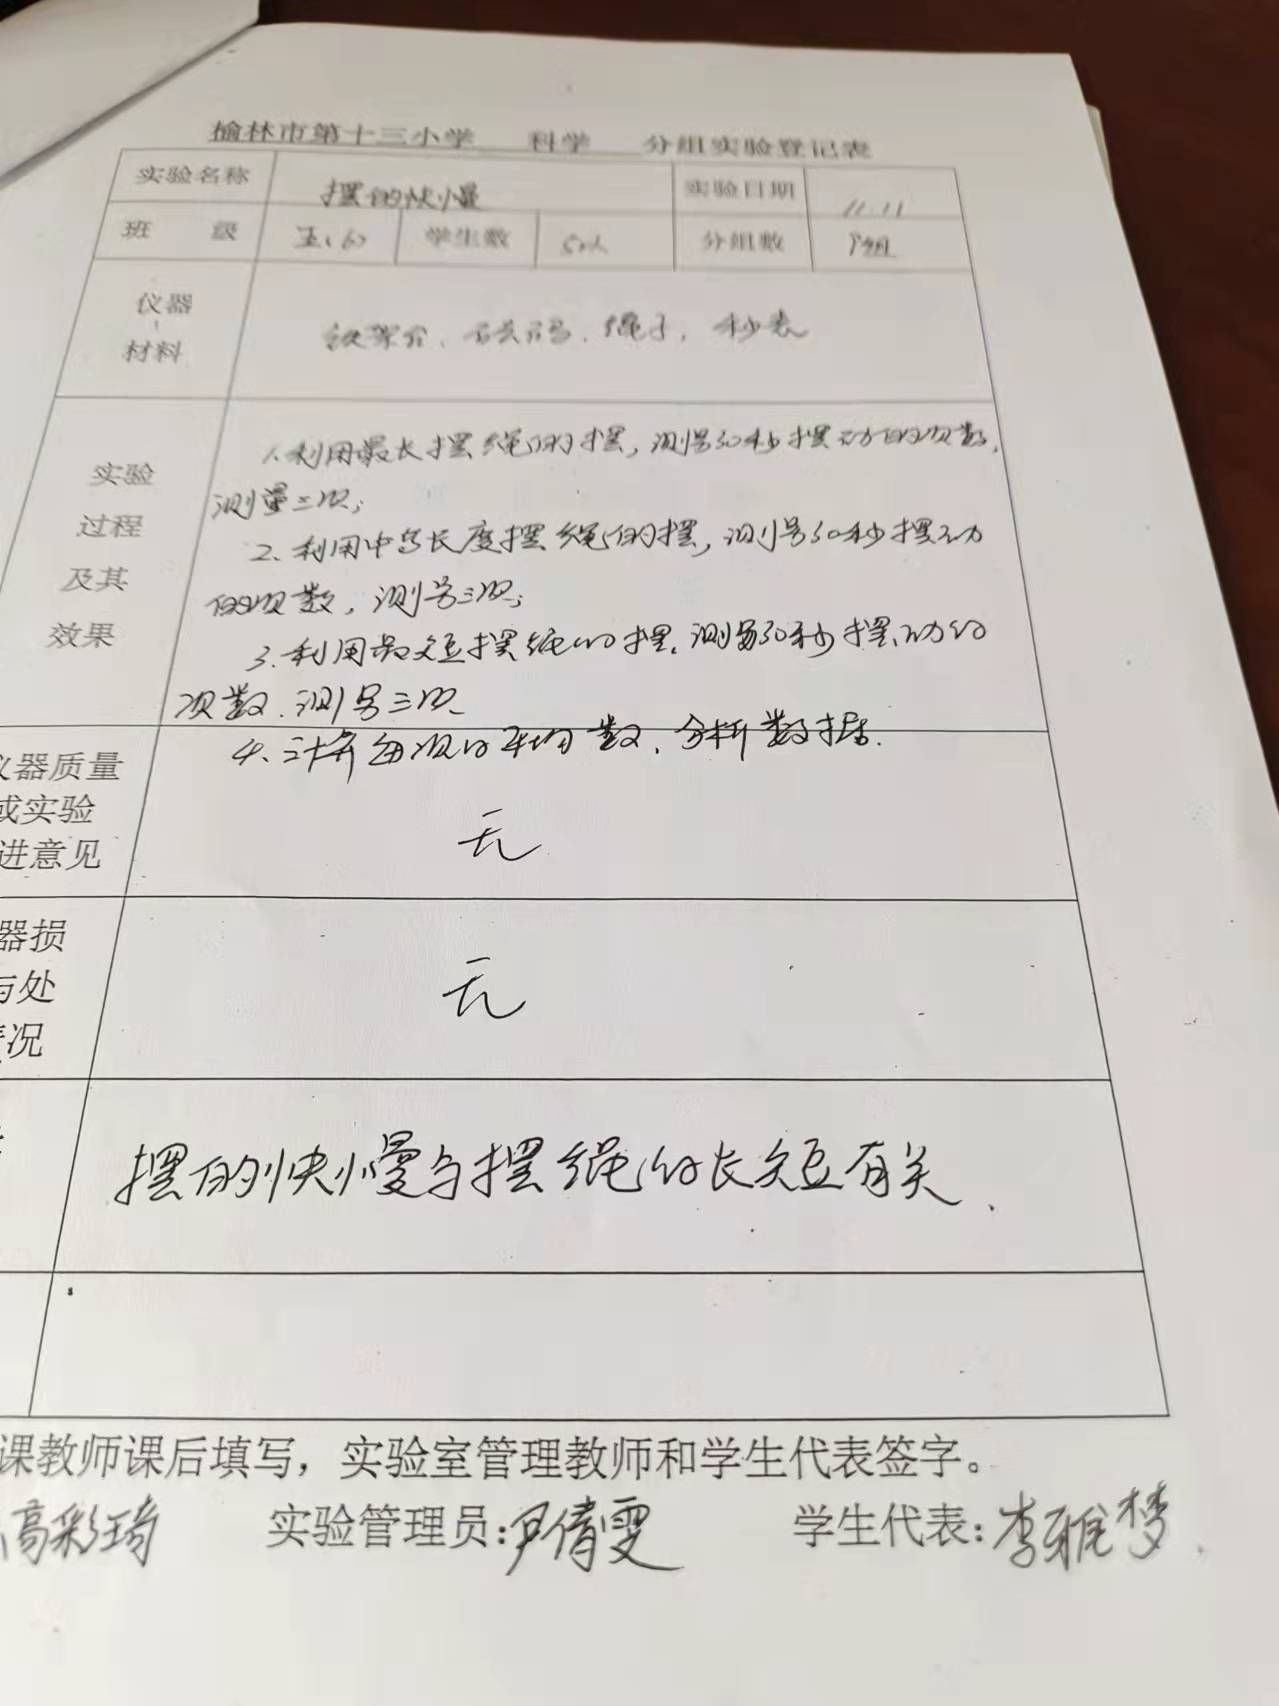 榆林市第十三小学 科学 分组实验登记表
实验名称 摆的快慢 实验日期 11.11
班 级 五(6) 学生数 分组数
仪器
材料
铁架台、砝码、绳子、秒表
实验
过程
及其
效果
1.利用最长摆绳的摆,测量30秒摆动的次数,
测量三次;
2.利用中等长度摆绳的摆,测量30秒摆动
的次数,测量三次;
3.利用最短摆绳的摆,测量30秒摆动的
次数、测量三次、
4、计算每次的平均数、分析数据.
仪器质量
或实验
进意见
无
器损
与处
情况
无
摆的快慢与摆绳的长短有关、
课教师课后填写,实验室管理教师和学生代表签字。
高彩琦 实验管理员:尹倩雯 学生代表:李雅梦